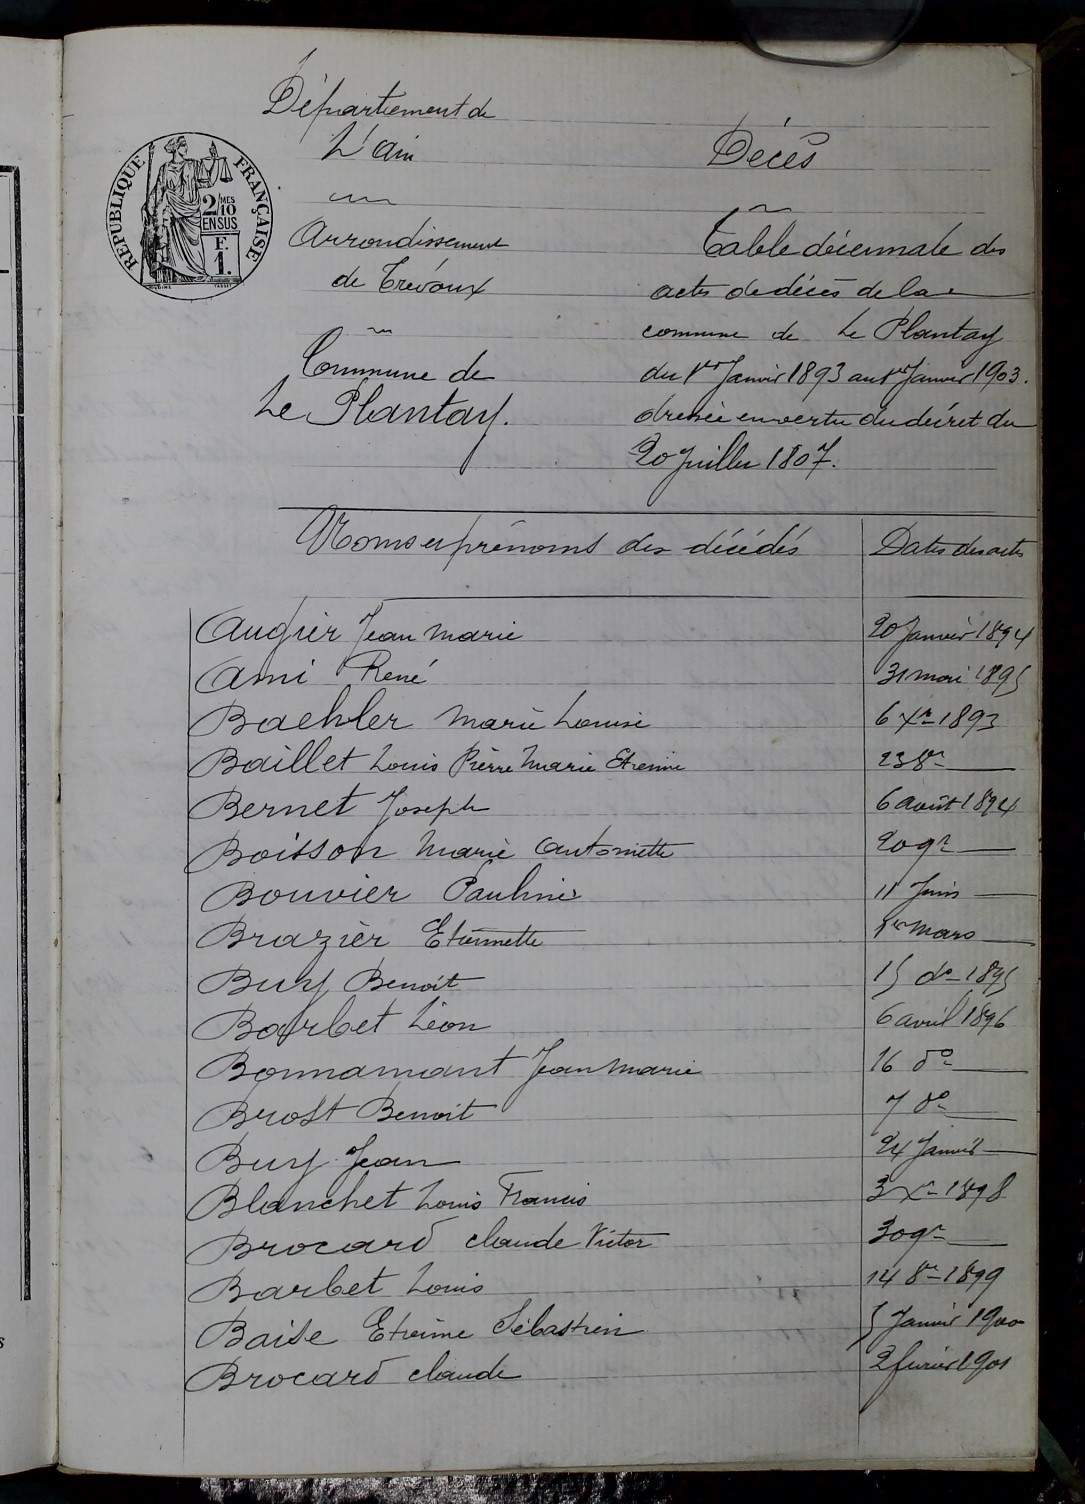 Département de
L'ain
Décès
RÉPUBLIQUE FRANÇAISE
2 MES
10
EN SUS
F.
1.
Arrondissement
de Trévoux
Table décennale des
actes de décès de la
commune de Le Plantay
Commune de
Le Plantay.
du 1er Janvier 1893 au 1er Janvier 1903.
dressée en vertu du décret du
20 Juillet 1807.
Noms et prénoms des décédés Dates des actes
Augier Jean Marie 20 Janvier 1894
Ami René 31 mai 1895
Baehler Marie Louise 6 Xre 1893
Baillet Louis Pierre Marie Etienne 23 8re
Bernet Joseph 6 août 1894
Boisson Marie Antoinette 20 9re
Bouvier Pauline 11 Juin
Brazier Etiennette 1er Mars
Buy Benoit 15 do 1895
Barbet Léon 6 avril 1896
Bonnamant Jean Marie 16 do
Brost Benoit 7 do
Buy Jean 24 Janvier
Blanchet Louis Francis 3 Xre 1898
Brocard Claude Victor 30 9re
Barbet Louis 14 8re 1899
Baise Etienne Sébastien 5 Janvier 1900
Brocard Claude 2 février 1901